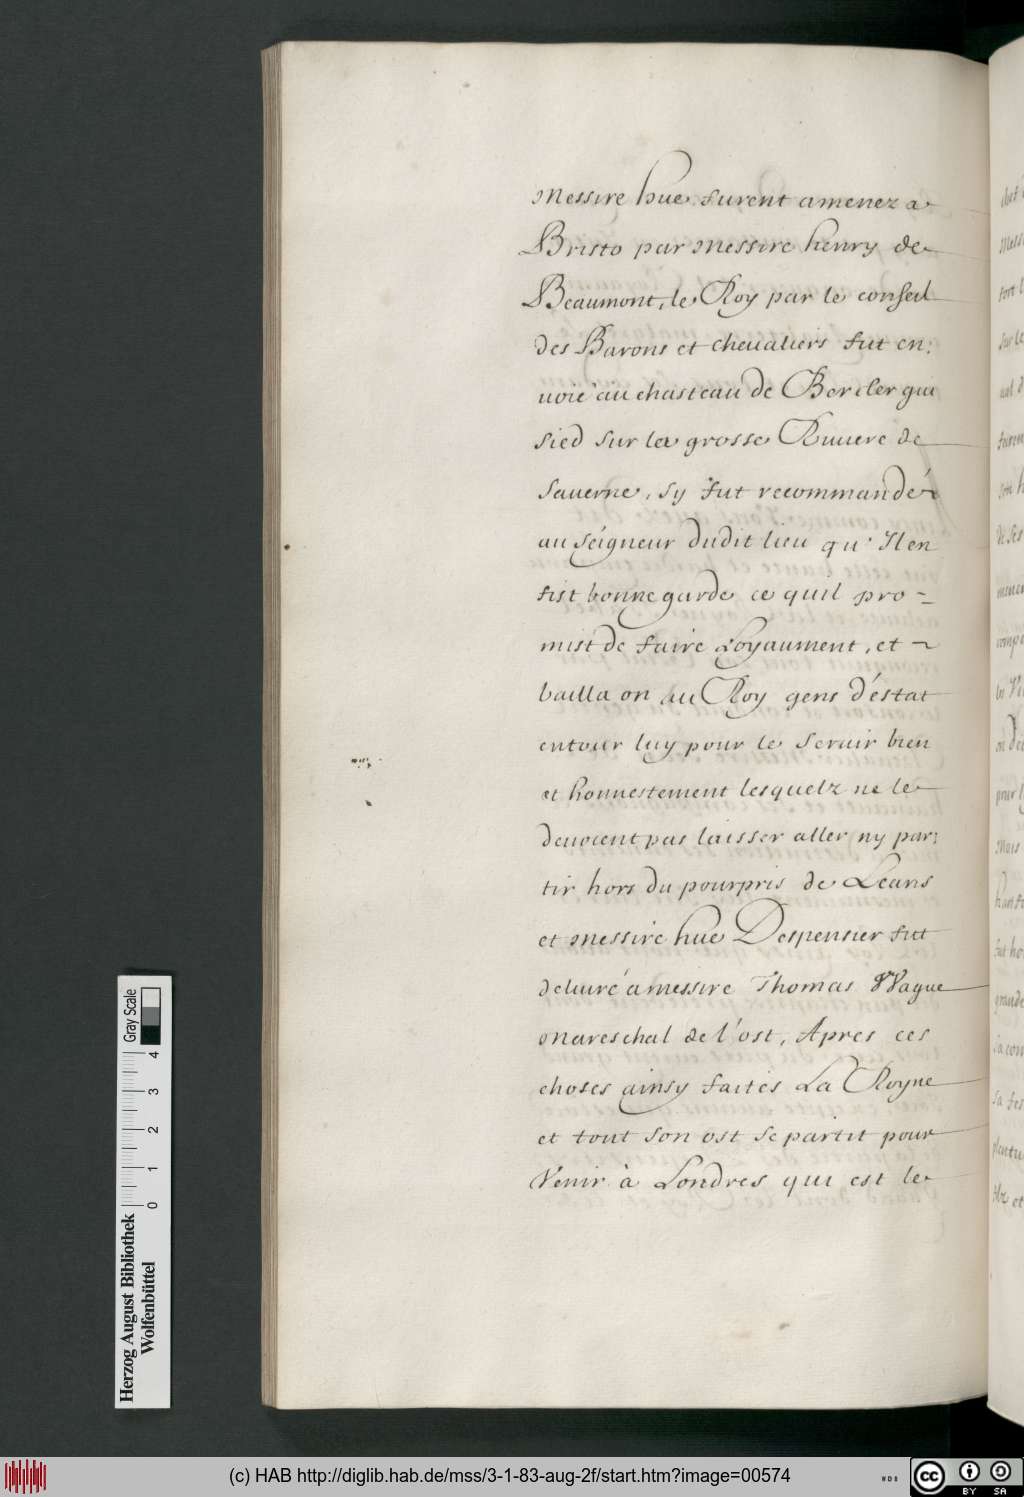 messire hue furent amenez a
Bristo par messire henry de
Beaumont, le Roy par le conseil
des Barons et chevaliers fut en:
uoié au chasteau de Bercler qui
sied sur la grosse Riuiere de
Sauerne, sy fut recommandé
au seigneur dudit lieu qu'Il en
fist bonne garde ce quil pro-
mist de faire Loyaument, et
bailla on au Roy gens d'éstat
entour luy pour le Seruir bien
et honnestement lesquelz ne le
deuoient pas laisser aller ny par:
tir hors du pourpris de Leans
et messire hue Despensier fut
deliuré a messire Thomas Wague
mareschal de l'ost, Apres ces
choses ainsy faites La Royne
et tout son ost se partit pour
Venir à Londres qui est le
Herzog August Bibliothek
Wolfenbüttel
0 1 2 3 4
Gray Scale
(c) HAB http://diglib.hab.de/mss/3-1-83-aug-2f/start.htm?image=00574
WDB
cc BY SA